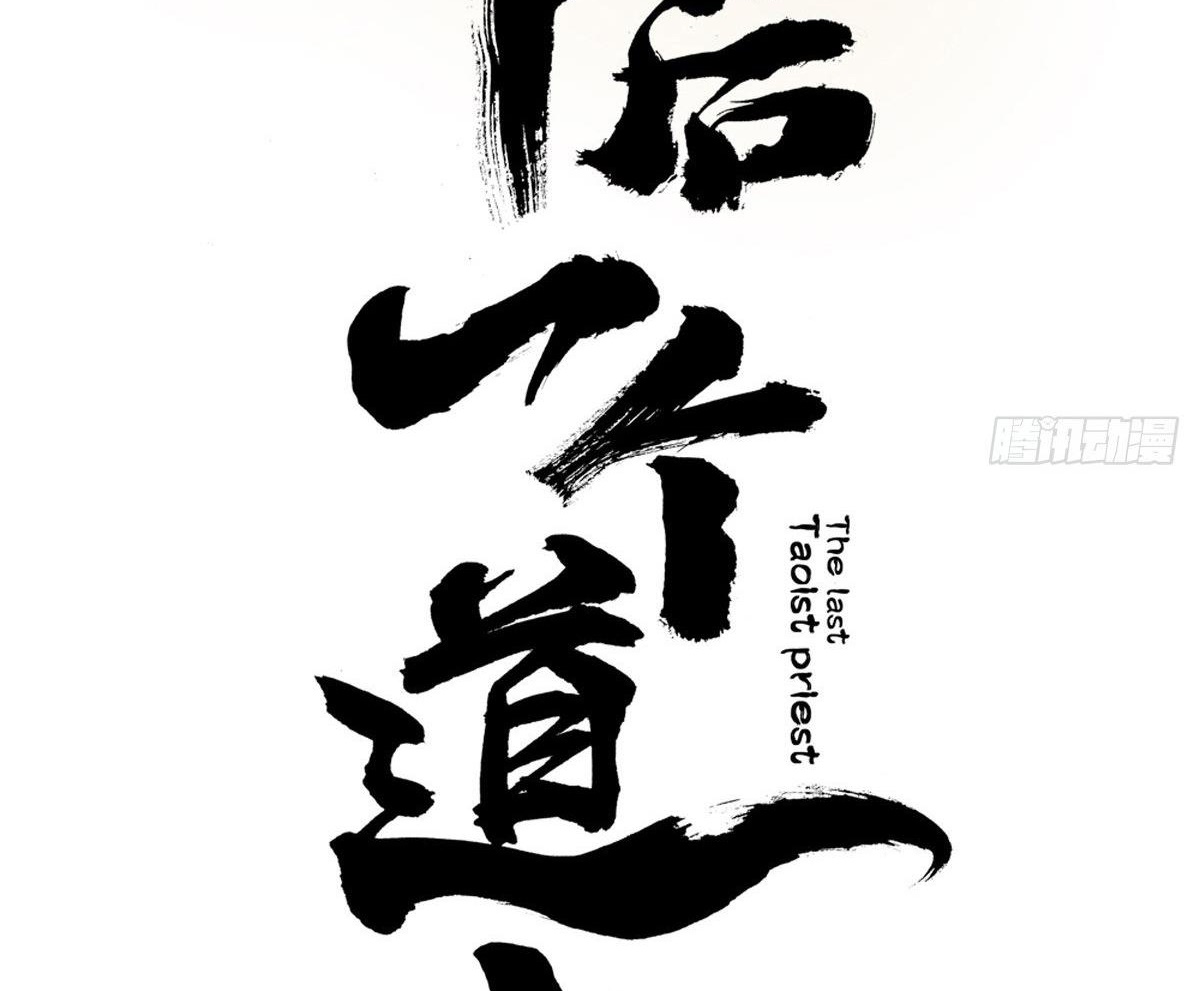 后一个道
The last
Taoist priest
腾讯动漫